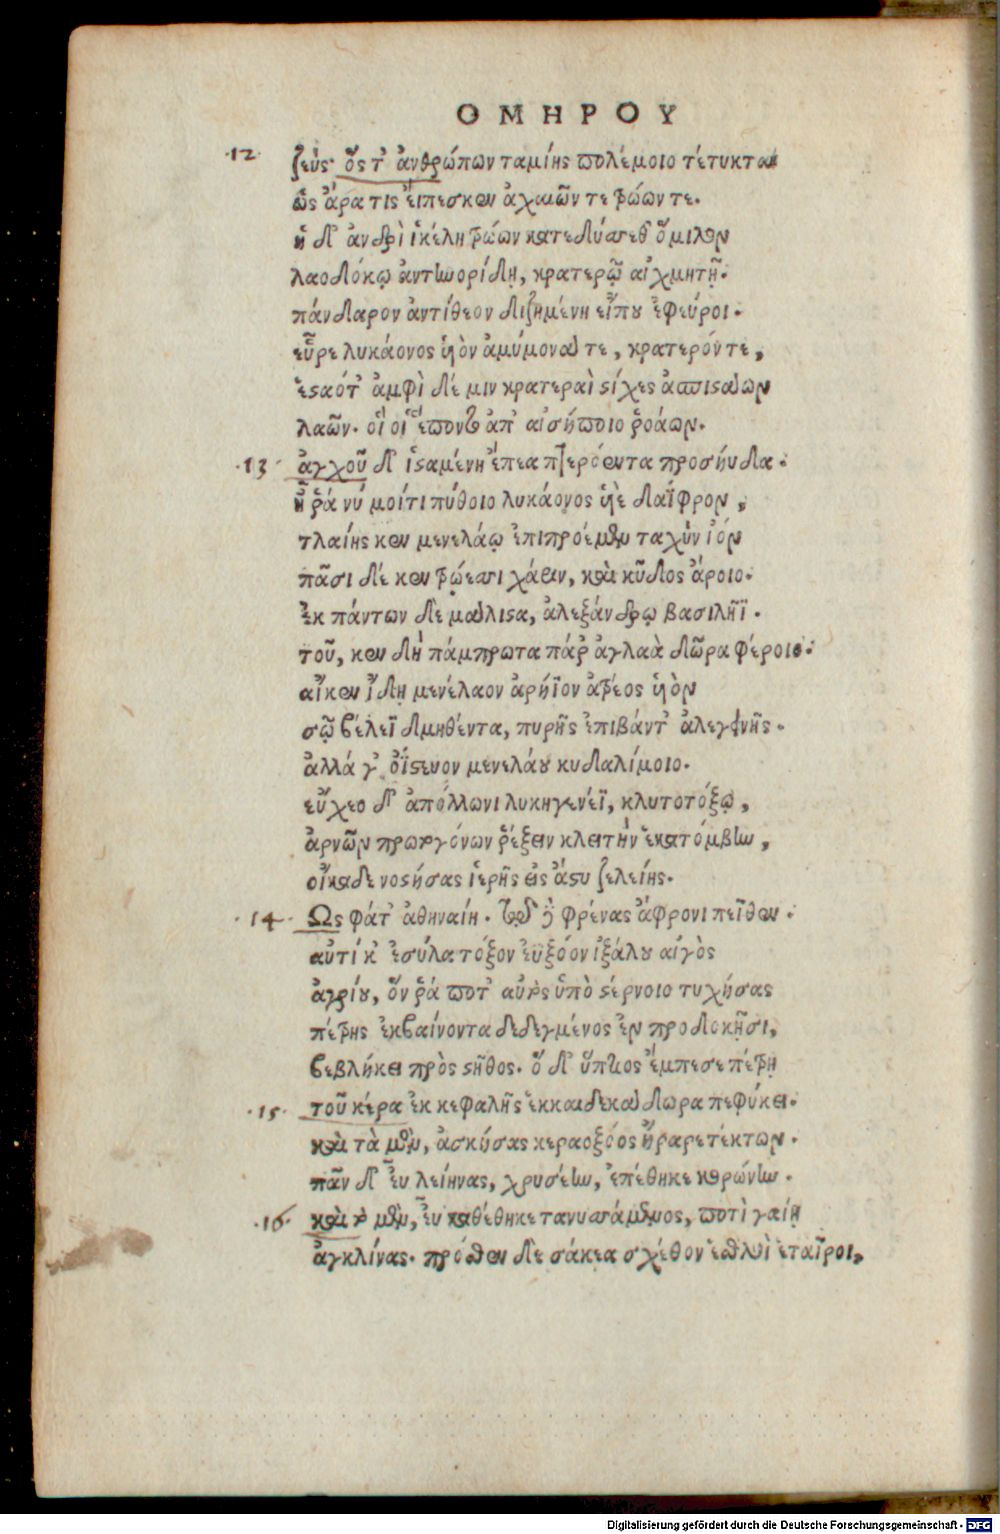 ΟΜΗΡΟΥ
·12· ζεὺς· ὅς τ' ἀνθρώπων ταμίης πολέμοιο τέτυκται
ὣς ἄρα τις εἴπεσκεν ἀχαιῶν τε τρώων τε.
ἡ δ' ἀνδρὶ ἰκέλη τρώων κατεδύσεθ' ὅμιλον
λαοδόκῳ ἀντηνορίδῃ, κρατερῷ αἰχμητῇ·
πάνδαρον ἀντίθεον διζημένη εἴπου ἐφεύροι·
εὗρε λυκάονος ὑὸν ἀμύμονά τε, κρατερόν τε,
ἑσταότ' ἀμφὶ δέ μιν κρατεραὶ στίχες ἀσπιστάων
λαῶν· οἵ οἱ ἕποντο ἀπ' αἰσήποιο ῥοάων.
·13· ἀγχοῦ δ' ἱσταμένη ἔπεα πτερόεντα προσηύδα·
ἦ ῥά νύ μοίτι πύθοιο λυκάονος ὑὲ δαΐφρον,
τλαίης κεν μενελάῳ ἐπιπροέμεν ταχὺν ἰόν
πᾶσι δέ κεν τρώεσσι χάριν, καὶ κῦδος ἄροιο·
ἐκ πάντων δὲ μάλιστα, ἀλεξάνδρῳ βασιλῆϊ·
τοῦ, κεν δὴ πάμπρωτα πάρ' ἀγλαὰ δῶρα φέροιο·
αἴκεν ἴδῃ μενέλαον ἀρήϊον ἀτρέος ὑὸν
σῷ βέλεϊ δμηθέντα, πυρῆς ἐπιβάντ' ἀλεγεινῆς·
ἀλλά γ' ὀΐστευον μενελάου κυδαλίμοιο.
εὔχεο δ' ἀπόλλωνι λυκηγενέϊ, κλυτοτόξῳ,
ἀρνῶν πρωτογόνων ῥέξειν κλειτὴν ἑκατόμβην,
οἴκαδε νοστήσας ἱερῆς εἰς ἄστυ ζελείης.
·14· Ὣς φάτ' ἀθηναίη. τῷ δὲ φρένας ἄφρονι πεῖθεν·
αὐτίκ' ἐσύλα τόξον ἐΰξοον ἰξάλου αἰγὸς
ἀγρίου, ὅν ῥά ποτ' αὐτὸς ὑπὸ στέρνοιο τυχήσας
πέτρης ἐκβαίνοντα δεδεγμένος ἐν προδοκῇσι,
βεβλήκει πρὸς στῆθος· ὅ δ' ὕπτιος ἔμπεσε πέτρῃ
·15· τοῦ κέρα ἐκ κεφαλῆς ἑκκαιδεκάδωρα πεφύκει·
καὶ τὰ μὲν, ἀσκήσας κεραοξόος ἤραρε τέκτων·
πᾶν δ' εὖ λείηνας, χρυσέην, ἐπέθηκε κορώνην·
·16· καὶ τὸ μὲν, εὖ κατέθηκε τανυσσάμενος, ποτὶ γαίῃ
ἀγκλίνας· πρόσθεν δὲ σάκεα σχέθον ἐσθλοὶ ἑταῖροι,
Digitalisierung gefördert durch die Deutsche Forschungsgemeinschaft - DFG